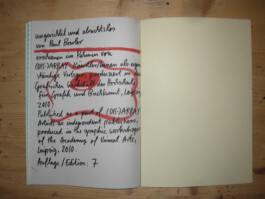 ungerichtet und absichtslos
von Paul Bowler
erschienen im Rahmen von
(DIS-)ARRAY Künstler/innen als eigen-
ständige Verleger, produziert in den
Grafischen Werkstätten der Hochschule
für Grafik und Buchkunst, Leipzig,
2010.
Published as a part of (DIS-)ARRAY
Artists as independent publishers,
produced in the graphic workshops
of the Academy of Visual Arts,
Leipzig, 2010.
Auflage / Edition: 7